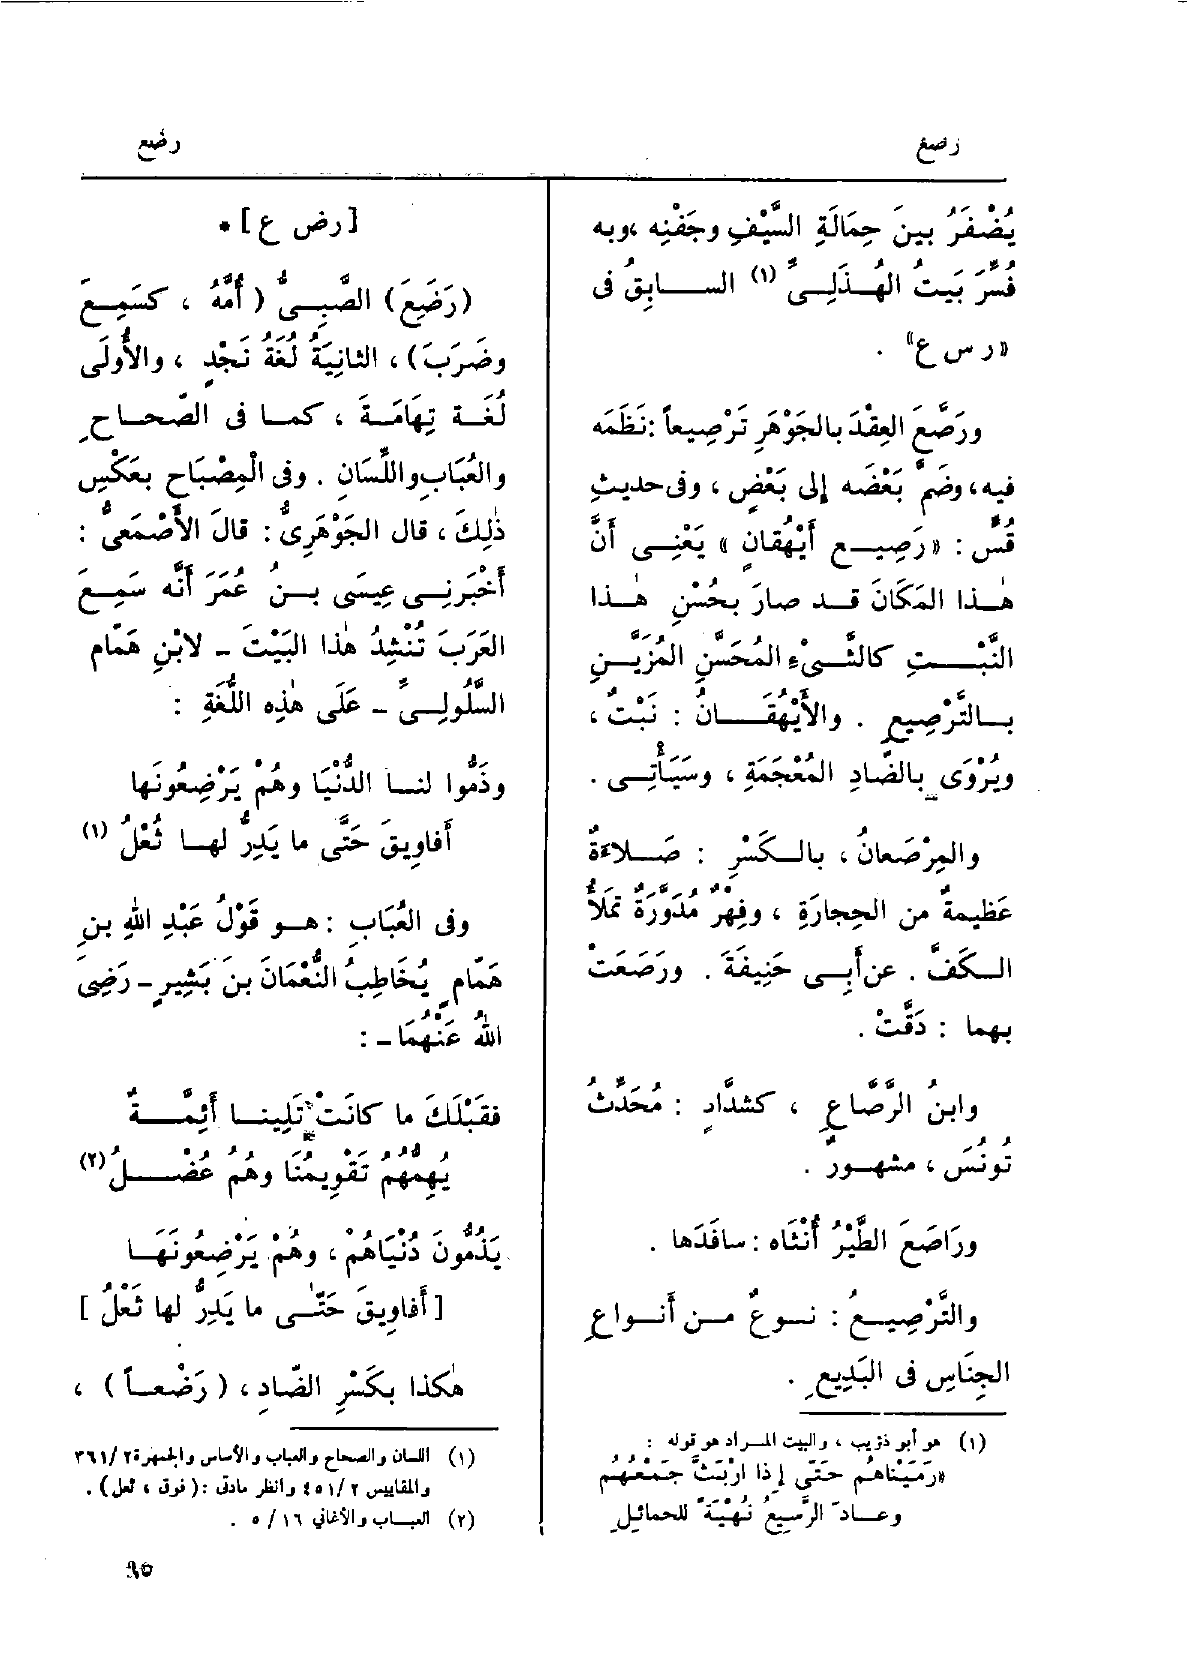 رصع
رضع
يُضْفَرُ بينَ حِمَالَةِ السَّيْفِ وجَفْنِه ،وبه
فُسِّرَ بَيتُ الهُـذَلِـىِّ (١) الســابِقُ فى
«ر س ع» .
ورَصَّعَ العِقْدَ بالجَوْهَرِ تَرْصِيعاً :نَظَمَه
فيه، وضَمَّ بَعْضَه إلى بَعْضٍ ، وفى حديثِ
قُسٍّ : «رَصِيــع أَيْهُقَانٍ » يَعْنِــى أَنَّ
هٰـذا المَكَانَ قــد صارَ بحُسْنِ هٰــذا
النَّبْــــتِ كالشَّىْءِ المُحَسَّنِ المُزَيَّــنِ
بــالتَّرْصِيعِ . والأَيْهُقَــــانُ : نَبْتٌ ،
ويُرْوَى بالضَّادِ المُعْجَمَةِ ، وسَيَأْتِــى .
والمِرْصَعانُ ، بالــكَسْرِ : صَــلاءَةٌ
عَظِيمةٌ من الحِجارَةِ ، وفِهْرٌ مُدَوَّرَةٌ تَملأُ
الــكَفَّ . عن أَبِــى حَنِيفَةَ . ورَصَعَتْ
بهما : دَقَّتْ .
وابنُ الرَّصّاعِ ، كشدَّادٍ : مُحَدِّثُ
تُونُسَ ، مشهور .
ورَاصَعَ الطَّيْرُ أُنْثَاه : سافَدَها .
والتَّرْصِيــعُ : نــوعٌ مــن أَنــواعِ
الجِنَاسِ فى البَدِيعِ .
(١) هو أبو ذؤيب ، والبيت المــراد هو قوله :
«رَمَيْناهُم حَتّى إِذا ارْبَثَّ جَمْعُهُم
وعــادَ الرَّسيعُ نُهْيَةً للحمائِلِ
[ ر ض ع ] *
(رَضَعَ) الصَّبِــىُّ ( أُمَّهُ ، كسَمِــعَ
وضَرَبَ) ، الثانِيَةُ لُغَةُ نَجْدٍ ، والأُولَى
لُغَــة تِهَامَــةَ ، كمــا فى الصّحــاحِ
والعُبَابِ واللِّسَانِ . وفى الْمِصْبَاحِ بعَكْسِ
ذٰلِكَ ، قال الجَوْهَرِىُّ : قالَ الأَصْمَعىُّ :
أَخْبَرنِــى عِيسَى بــنُ عُمَرَ أَنَّه سَمِــعَ
العَرَبَ تُنْشِدُ هٰذا البَيْتَ – لابْنِ هَمّام
السَّلُولِــىّ – عَلَى هٰذِه اللُّغَةِ :
وذَمُّوا لنــا الدُّنْيَا وهُمْ يَرْضِعُونَها
أَفاوِيقَ حَتَّى ما يَدِرُّ لهــا ثُعْلُ (١)
وفى العُبَابِ : هــو قَوْلُ عَبْدِ اللهِ بنِ
هَمّامٍ يُخَاطِبُ النُّعْمَانَ بنَ بَشِيرٍ – رَضِىَ
اللهُ عَنْهُمَا – :
فقَبْلَكَ ما كانَتْ تَلِينــا أَئِمَّــــةٌ
يُهِمُّهُمُ تَقْوِيمُنَا وهُمُ عُصْــــلُ (٢)
يَذُمُّونَ دُنْيَاهُمْ ، وهُمْ يَرْضِعُونَهَــا
[ أَفاوِيقَ حَتّٰــى ما يَدِرُّ لها ثَعْلُ ]
هٰكذا بكَسْرِ الضّادِ ، ( رَضْعــاً ) ،
(١) اللسان والصحاح والعباب والأساس والجمهرة ٢ /٣٦١
والمقاييس ٢ /٤٥١ وانظر مادتى : ( فوق ، ثعل ) .
(٢) العبــاب والأغاني ١٦ / ٥ .
٩٥